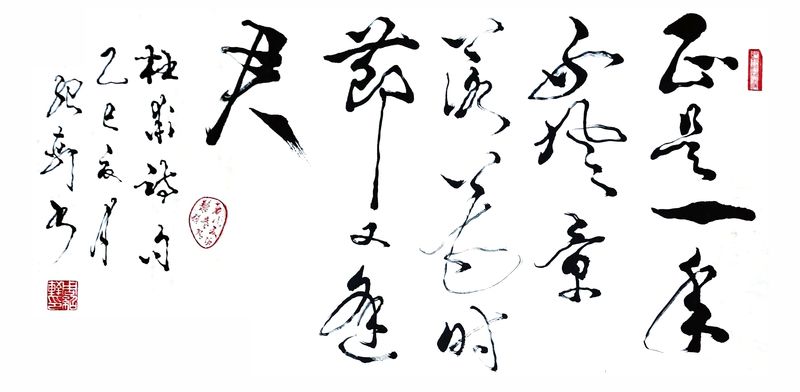 正是一年
好风景
落花时
節又逢
君
杜甫诗句
乙巳夏月
绍轩书